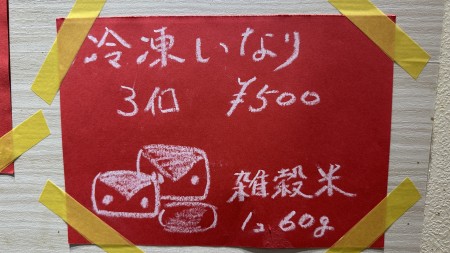 冷凍いなり
3個 ¥500
雑穀米
1コ 60g